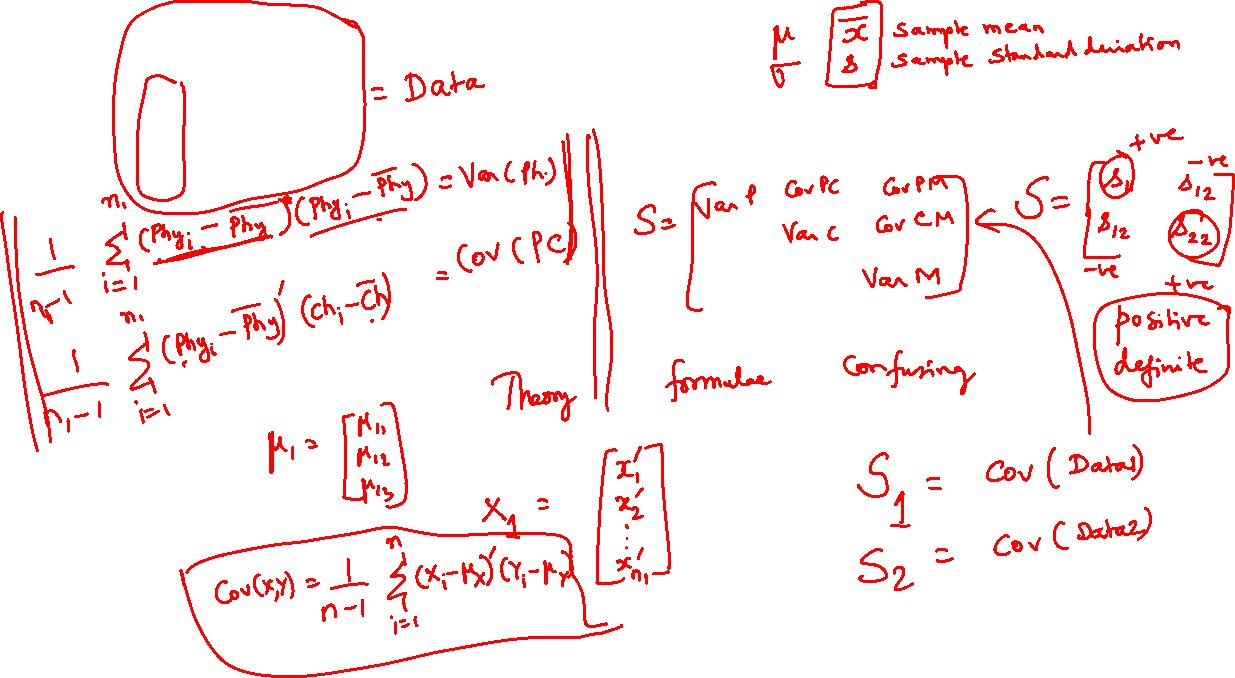 = Data
μ x̄ sample mean
σ s sample standard deviation
1/(n₁-1) Σ_{i=1}^{n₁} (Phy_i - \overline{Phy})' (Phy_i - \overline{Phy}) = Var(Ph.)
1/(n₁-1) Σ_{i=1}^{n₁} (Phy_i - \overline{Phy})' (Ch_i - \overline{Ch}) = Cov(PC)
S = [Var P Cov PC Cov PM
Var C Cov CM
Var M]
S = [s₁ s₁₂
s₁₂ s₂₂]
+ve -ve
-ve +ve
positive
definite
Theory formulae Confusing
μ₁ = [μ₁₁
μ₁₂
μ₁₃]
X₁ = [x₁'
x₂'
⋮
x_{n₁}']
S₁ = Cov(Data1)
S₂ = Cov(Data2)
Cov(X,Y) = 1/(n-1) Σ_{i=1}^{n} (X_i - μ_X)' (Y_i - μ_Y)